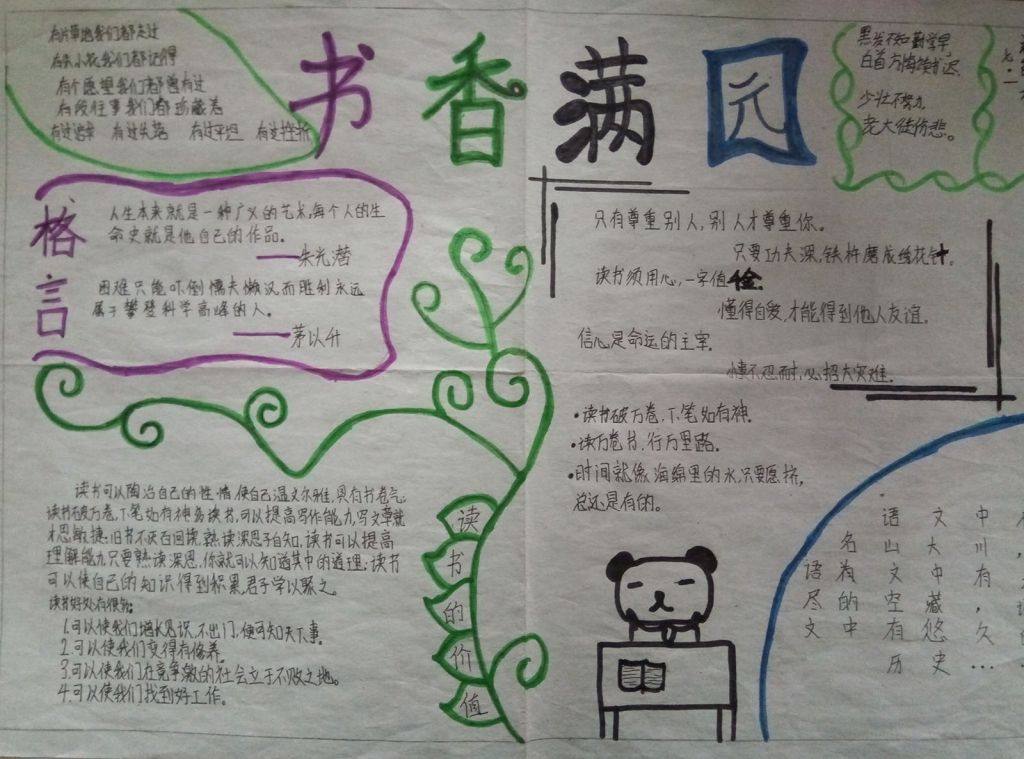 有片草地我们都走过
有首小歌我们都记得
有个愿望我们都曾有过
有段往事我们都珍藏着
有过语辛 有过失落 有过平坦 有过挫折
书香满园
黑发不知勤学早,
白首方悔读书迟。
少壮不努力
老大徒伤悲。
格言
人生本来就是一种广义的艺术,每个人的生
命史就是他自己的作品。
——朱光潜
困难只能吓倒懦夫懒汉而胜利永远
属于攀登科学高峰的人。
——茅以升
只有尊重别人,别人才尊重你。
只要功夫深,铁杵磨成绣花针。
读书须用心,一字值金。
懂得自爱,才能得到他人友谊。
信心是命运的主宰。
小事不忍耐,必招大灾难。
·读书破万卷,下笔如有神。
·读万卷书,行万里路。
·时间就像海绵里的水,只要愿挤,
总还是有的。
读书可以陶冶自己的性情,使自己温文尔雅,具有书卷气;
读书破万卷,下笔如有神,多读书,可以提高写作能力,写文章就
才思敏捷;旧书不厌百回读,熟读深思子自知,读书可以提高
理解能力,只要熟读深思,你就可以知道其中的道理;读书
可以使自己的知识得到积累,君子学以聚之。
读书好处有很多:
1.可以使我们增长见识,不出门,便可知天下事。
2.可以使我们变得有修养。
3.可以使我们在竞争激的社会立于不败之地。
4.可以使我们找到好工作。
读书的价值
语文中
名山大川,
语为文中有
尽的空藏,
文中有悠久
历史…